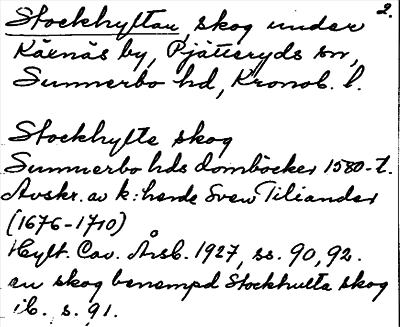 2.
Stockhyltan, skog under
Kärnäs by, Pjätteryds sn,
Sunnerbo hd, Kronob. l.
Stockhylte skog
Sunnerbo hds domböcker 1580-t.
Avskr. av k:herde Sven Tiliander
(1676-1710)
Hylt. Cav. Årsb. 1927, ss. 90, 92.
en skog benempd Stockhulta skog
ib., s. 91.